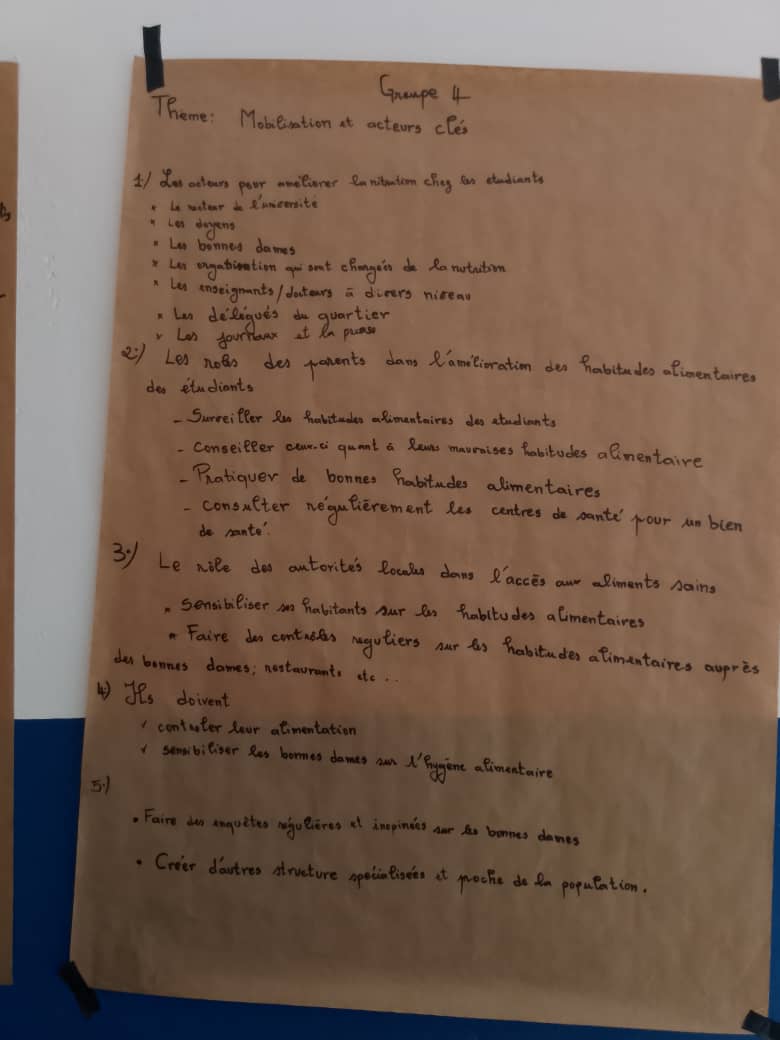 Groupe 4
Thème: Mobilisation et acteurs clés
1/ Les acteurs pour améliorer la nitrution chez les etudiants
* Le recteur de l'université
* Les doyens
* Les bonnes dames
* Les organisation qui sont chargées de la nutrition
* Les enseignants/docteurs à divers niveau
* Les délégués du quartier
* Les journaux et la presse
2:) Les roles des parents dans l'amélioration des habitudes alimentaires
des étudiants
- Surveiller les habitudes alimentaires des etudiants
- Conseiller ceux-ci quant à leurs mauvaises habitudes alimentaire
- Pratiquer de bonnes habitudes alimentaires
- Consulter régulièrement les centres de santé pour un bien
de santé.
3:) Le rôle des autorités locales dans l'accès aux aliments sains
* Sensibiliser ses habitants sur les habitudes alimentaires
* Faire des contrôles reguliers sur les habitudes alimentaires auprès
des bonnes dames; restaurants etc ..
4) Ils doivent
✓ controler leur alimentation
✓ sensibiliser les bonnes dames sur l'hygène alimentaire
5.)
• Faire des enquêtes régulières et inopinées sur les bonnes dames
• Créer d'autres structure spécialisées et poche de la population.